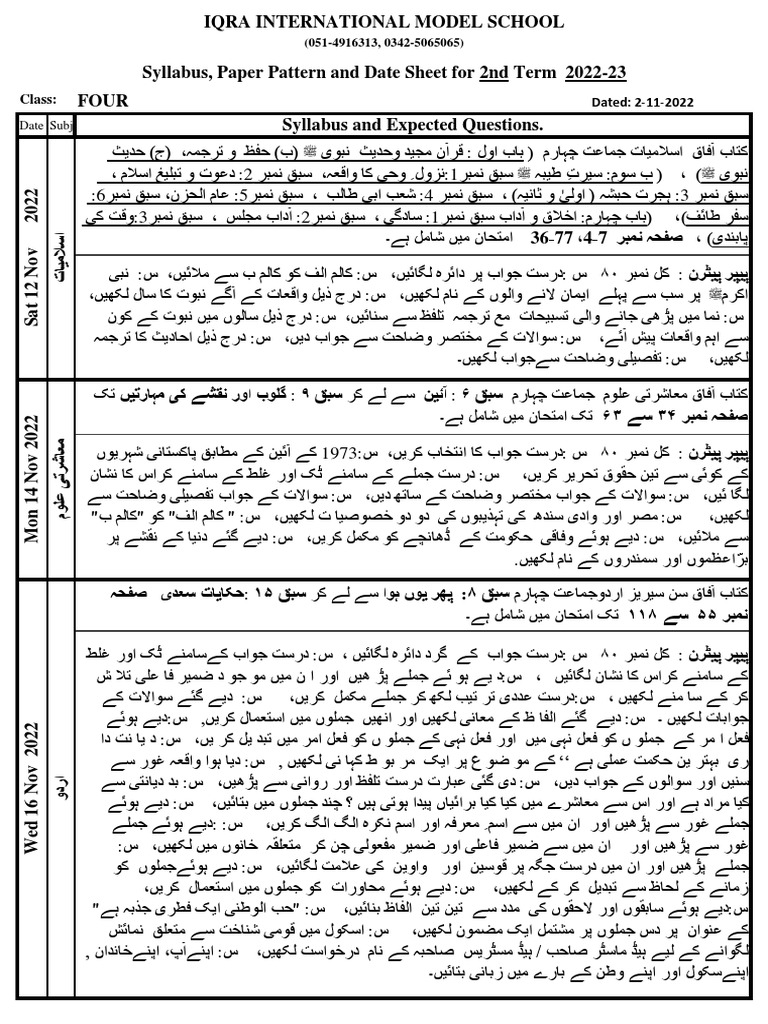 IQRA INTERNATIONAL MODEL SCHOOL
(051-4916313, 0342-5065065)
Syllabus, Paper Pattern and Date Sheet for 2nd Term 2022-23
Class: FOUR Dated: 2-11-2022
Date Subj Syllabus and Expected Questions.
Sat 12 Nov 2022
اسلامیات
کتاب آفاق اسلامیات جماعت چہارم ( باب اول : قرآن مجید وحدیث نبوی ﷺ (ب) حفظ و ترجمہ، (ج) حدیث
نبوی ﷺ) ، ( ب سوم: سیرتِ طیبہ ﷺ سبق نمبر 1:نزولِ وحی کا واقعہ، سبق نمبر 2: دعوت و تبلیغ اسلام ،
سبق نمبر 3: ہجرت حبشہ ( اولیٰ و ثانیہ) ، سبق نمبر 4: شعب ابی طالب ، سبق نمبر 5: عام الحزن، سبق نمبر 6:
سفر طائف)، (باب چہارم: اخلاق و آداب سبق نمبر 1: سادگی ، سبق نمبر 2: آداب مجلس ، سبق نمبر 3:وقت کی
پابندی) ، صفحہ نمبر 7-4، 77-36 امتحان میں شامل ہے۔
پیپر پیٹرن : کل نمبر ۸۰ س :درست جواب پر دائرہ لگائیں، س: کالم الف کو کالم ب سے ملائیں، س: نبی
اکرمﷺ پر سب سے پہلے ایمان لانے والوں کے نام لکھیں، س: درج ذیل واقعات کے آگے نبوت کا سال لکھیں،
س: نما میں پڑھی جانے والی تسبیحات مع ترجمہ تلفظ سے سنائیں، س: درج ذیل سالوں میں نبوت کے کون
سے اہم واقعات پیش آئے، س: سوالات کے مختصر وضاحت سے جواب دیں، س: درج ذیل احادیث کا ترجمہ
لکھیں، س: تفصیلی وضاحت سےجواب لکھیں۔
Mon 14 Nov 2022
معاشرتی علوم
کتاب آفاق معاشرتی علوم جماعت چہارم سبق ۶ : آئین سے لے کر سبق ۹ : گلوب اور نقشے کی مہارتیں تک
صفحہ نمبر ۳۴ سے ۶۳ تک امتحان میں شامل ہے۔
پیپر پیٹرن : کل نمبر ۸۰ س :درست جواب کا انتخاب کریں، س:1973 کے آئین کے مطابق پاکستانی شہریوں
کے کوئی سے تین حقوق تحریر کریں، س: درست جملے کے سامنے ٹک اور غلط کے سامنے کراس کا نشان
لگا ئیں، س: سوالات کے جواب مختصر وضاحت کے ساتھ دیں، س: سوالات کے جواب تفصیلی وضاحت سے
لکھیں، س: مصر اور وادی سندھ کی تہذیبوں کی دو دو خصوصیا ت لکھیں، س: " کالم الف" کو "کالم ب"
سے ملائیں، س: دیے ہوئے وفاقی حکومت کے ڈھانچے کو مکمل کریں، س: دیے گئے دنیا کے نقشے پر
برّاعظموں اور سمندروں کے نام لکھیں.
Wed 16 Nov 2022
اردو
کتاب آفاق سن سیریز اردوجماعت چہارم سبق ۸: پھر یوں ہوا سے لے کر سبق ۱۵ :حکایات سعدی صفحہ
نمبر ۵۵ سے ۱۱۸ تک امتحان میں شامل ہے۔
پیپر پیٹرن : کل نمبر ۸۰ س :درست جواب کے گرد دائرہ لگائیں ، س: درست جواب کےسامنے ٹک اور غلط
کے سامنے کراس کا نشان لگائیں ، س:دیے ہو ئے جملے پڑ ھیں اور ا ن میں مو جو د ضمیر فا علی تلا ش
کر کے سا منے لکھیں ، س:درست عددی تر تیب لکھ کر جملے مکمل کریں، س: دیے گئے سوالات کے
جوابات لکھیں ۔ س: دیے گئے الفا ظ کے معانی لکھیں اور انھیں جملوں میں استعمال کریں, س:دیے ہوئے
فعل ا مر کے جملو ں کو فعل نہی میں اور فعل نہی کے جملو ں کو فعل امر میں تبد یل کر یں، س: د یا نت دا
ری بہتر ین حکمت عملی ہے ‘‘ کے مو ضو ع پر ایک مر بو ط کہا نی لکھیں , س: دیا ہوا واقعہ غور سے
سنیں اور سوالوں کے جواب دیں، س: دی گئی عبارت درست تلفظ اور روانی سے پڑھیں، س: بد دیانتی سے
کیا مراد ہے اور اس سے معاشرے میں کیا کیا برائیاں پیدا ہوتی ہیں ؟ چند جملوں میں بتائیں، س: دیے ہوئے
جملے غور سے پڑھیں اور ان میں سے اسمِ معرفہ اور اسم نکرہ الگ الگ کریں، س: :دیے ہوئے جملے
غور سے پڑھیں اور ان میں سے ضمیر فاعلی اور ضمیر مفعولی چن کر متعلقہ خانوں میں لکھیں، س:
جملے پڑھیں اور ان میں درست جگہ پر قوسین اور واوین کی علامت لگائیں، س: دیے ہوئےجملوں کو
زمانے کے لحاظ سے تبدیل کر کے لکھیں، س: دیے ہوئے محاورات کو جملوں میں استعمال کریں،
س:دیے ہوئے سابقوں اور لاحقوں کی مدد سے تین تین الفاظ بنائیں، س: "حب الوطنی ایک فطری جذبہ ہے"
کے عنوان پر دس جملوں پر مشتمل ایک مضمون لکھیں، س: اسکول میں قومی شناخت سے متعلق نمائش
لگوانے کے لیے ہیڈ ماسٹر صاحب / ہیڈ مسٹریس صاحبہ کے نام درخواست لکھیں، س: اپنےآپ، اپنےخاندان ,
اپنےسکول اور اپنے وطن کے بارے میں زبانی بتائیں۔